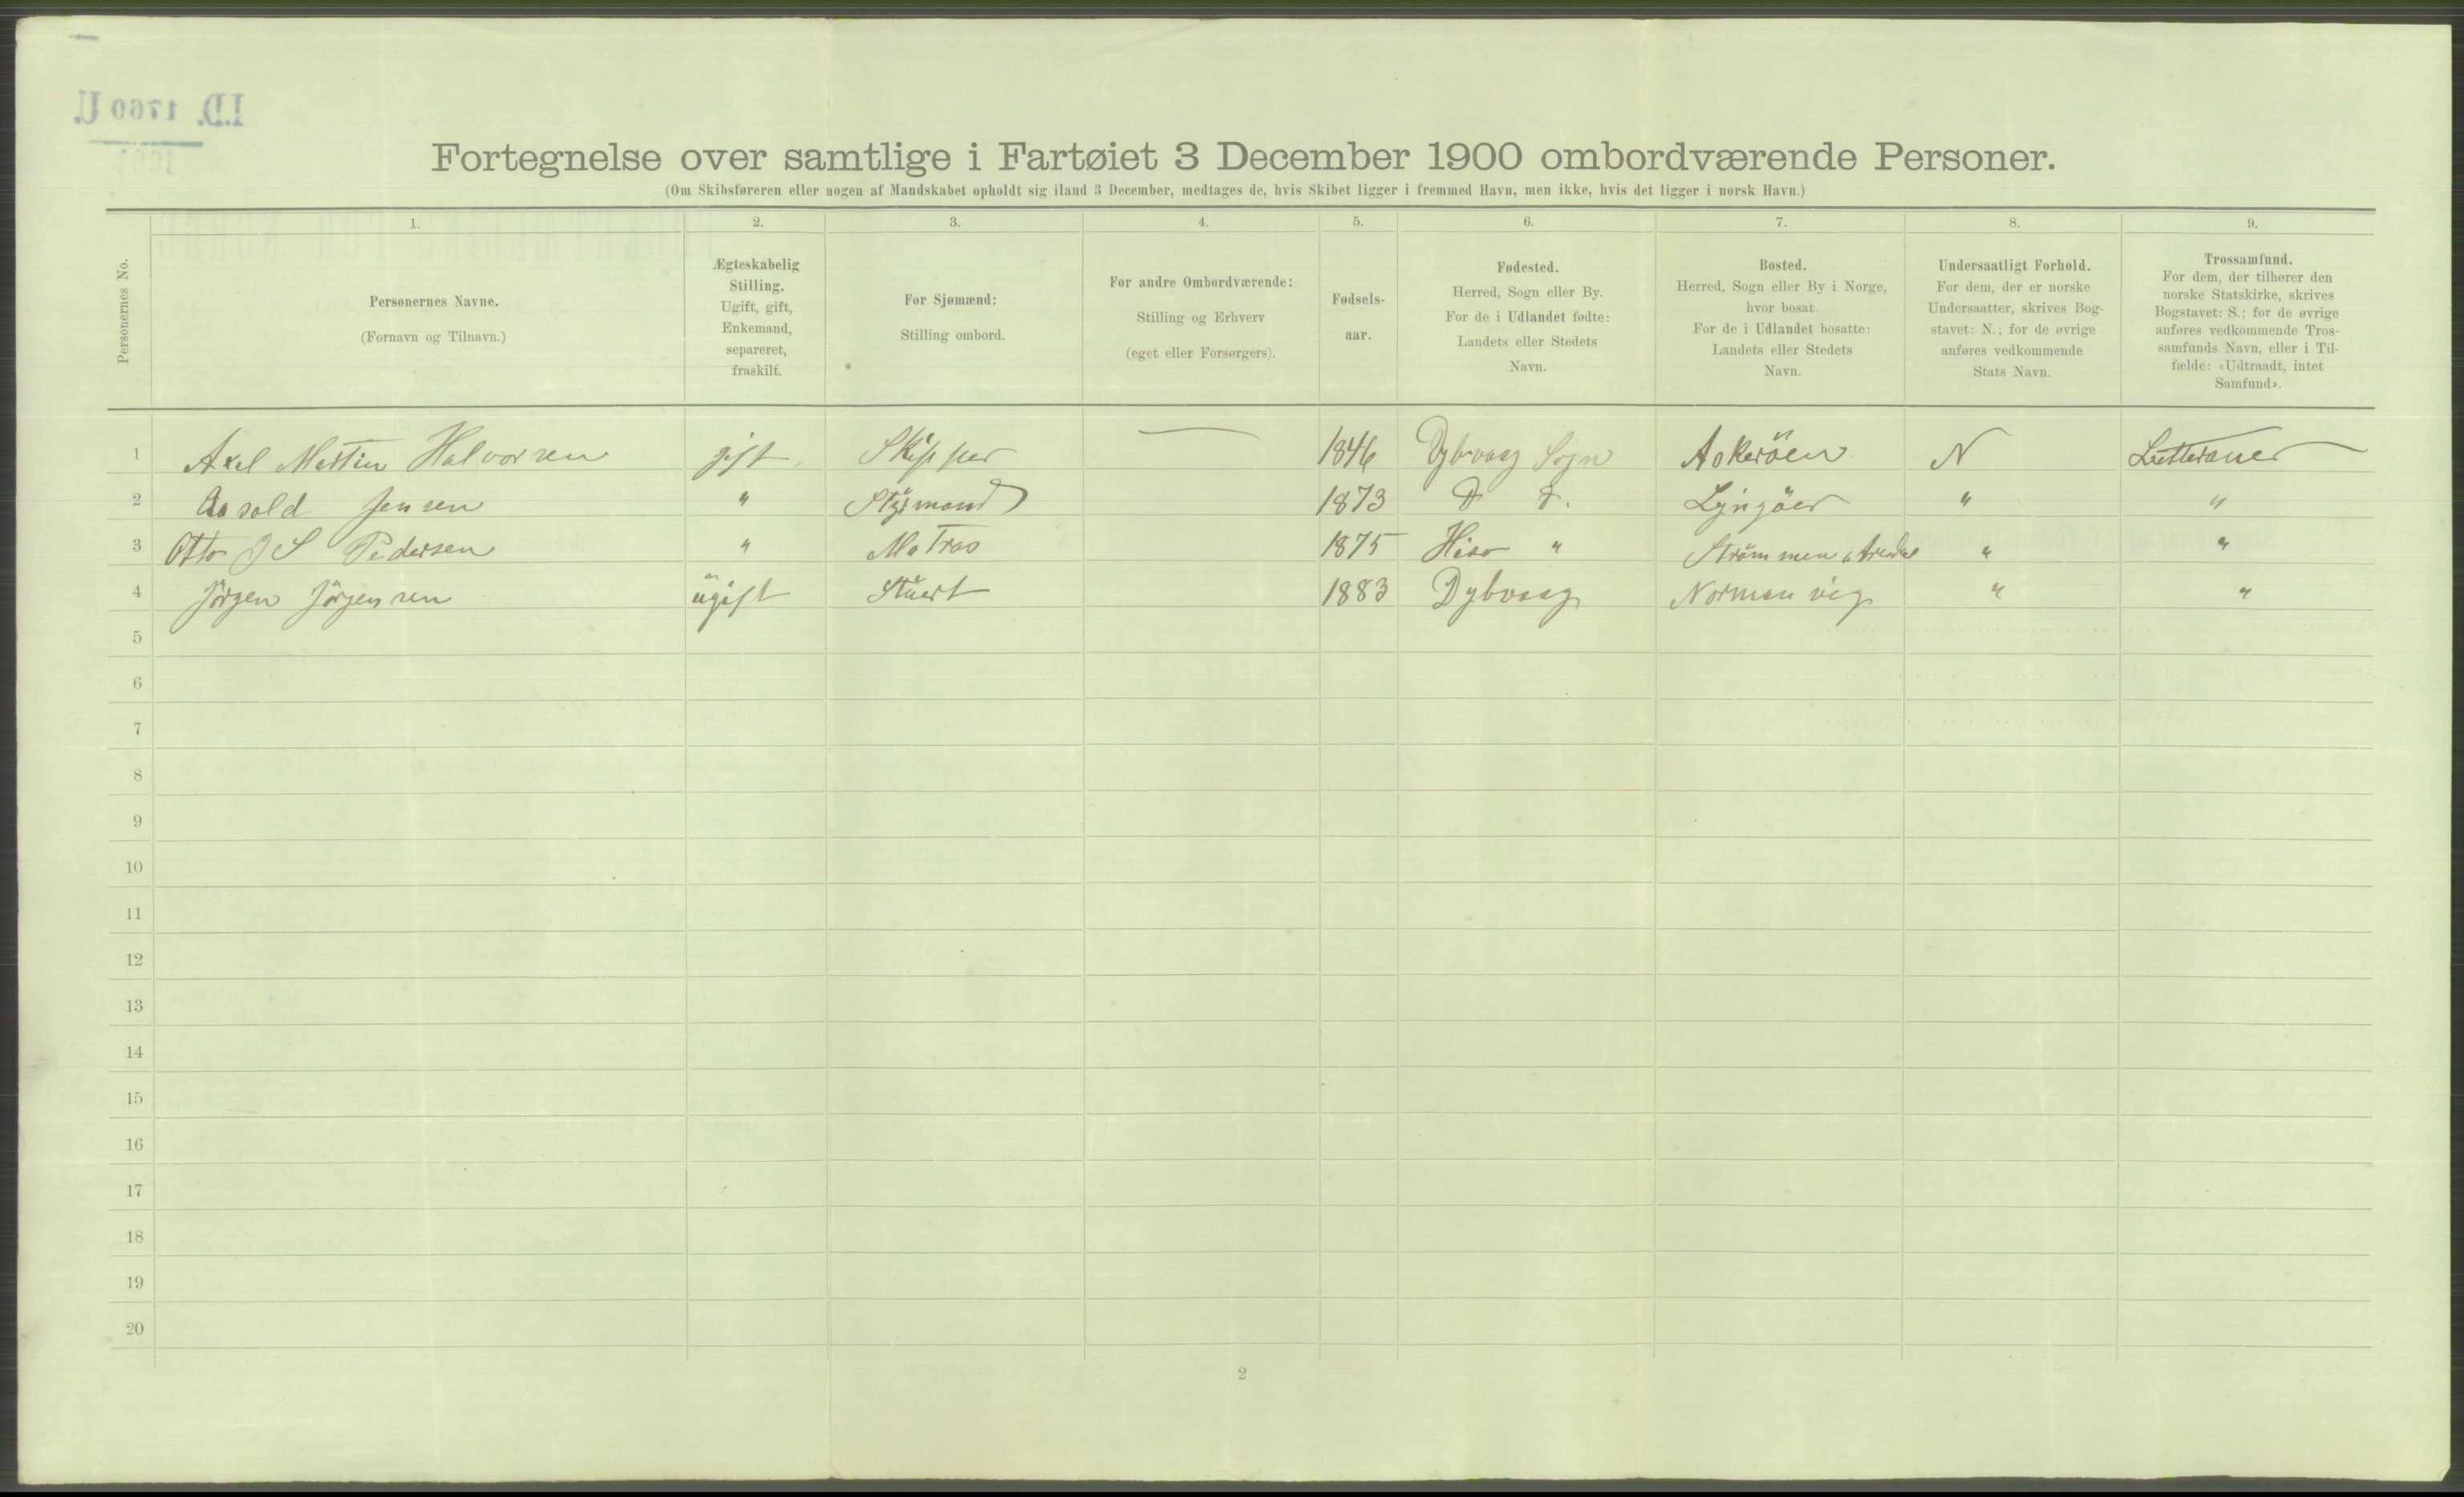 I.D. 1760 U.
Fortegnelse over samtlige i Fartøiet 3 December 1900 ombordværende Personer.
(Om Skibsføreren eller nogen af Mandskabet opholdt sig iland 3 December, medtages de, hvis Skibet ligger i fremmed Havn, men ikke, hvis det ligger i norsk Havn.)
1. 2. 3. 4. 5. 6. 7. 8. 9.
Personernes No.
Personernes Navne.
(Fornavn og Tilnavn.)
Ægteskabelig
Stilling.
Ugift, gift,
Enkemand,
separeret,
fraskilt.
For Sjømænd:
Stilling ombord.
For andre Ombordværende:
Stilling og Erhverv
(eget eller Forsørgers).
Fødsels-
aar.
Fødested.
Herred, Sogn eller By.
For de i Udlandet fødte:
Landets eller Stedets
Navn.
Bosted.
Herred, Sogn eller By i Norge,
hvor bosat.
For de i Udlandet bosatte:
Landets eller Stedets
Navn.
Undersaatligt Forhold.
For dem, der er norske
Undersaatter, skrives Bog-
stavet: N.; for de øvrige
anføres vedkommende
Stats Navn.
Trossamfund.
For dem, der tilhører den
norske Statskirke, skrives
Bogstavet: S.; for de øvrige
anføres vedkommende Tros-
samfunds Navn, eller i Til-
fælde: «Udtraadt, intet
Samfund».
1 Axel Martin Halvorsen gift Skipper — 1846 Dybvaag Sogn Askeröen N Lutteraner
2 Jensen " Styrmand 1873 D D. Lyngöer " "
3 Otto J S Pedersen " Matros 1875 Hisö " Strömmen Arendal " "
4 Jörgen Jörgensen ugift Stuert 1883 Dybvaag Normanvig " "
5
6
7
8
9
10
11
12
13
14
15
16
17
18
19
20
2